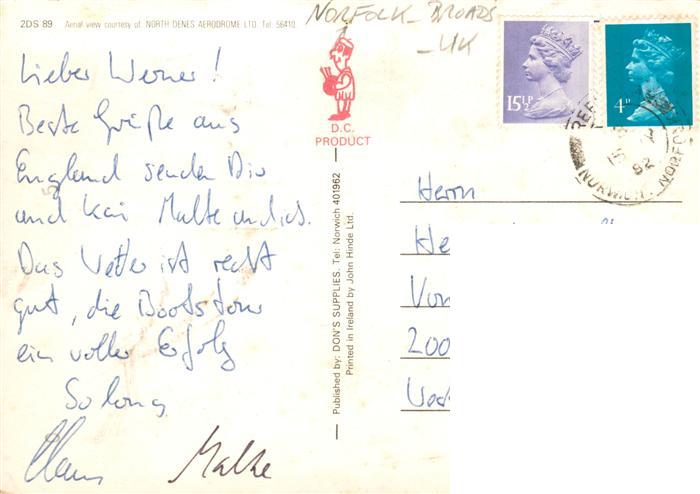 2DS 89 Aerial view courtesy of NORTH DENES AERODROME LTD. Tel: 56410.
NORFOLK - BROADS
- UK
15½P
4P
D.C.
PRODUCT
NORWICH NORFOLK
Lieber Werner!
Beste Grüße aus
England senden Dir
und Kai Malte und ich.
Das Wetter ist recht
gut, die Bootstour
ein voller Erfolg
So long
Claus Malte
Published by: DON'S SUPPLIES. Tel: Norwich 401962
Printed in Ireland by John Hinde Ltd.
Herrn
He
Vor
200